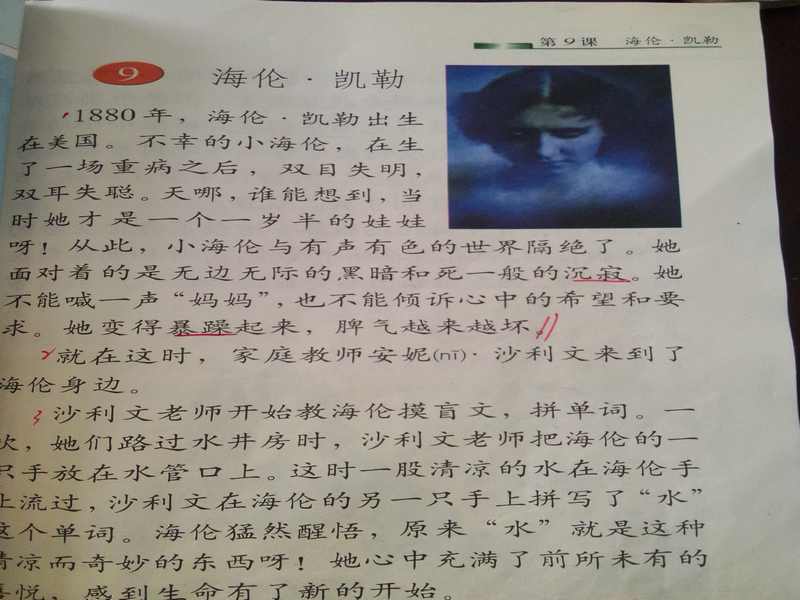 第9课 海伦·凯勒
9 海伦·凯勒
1880年，海伦·凯勒出生
在美国。不幸的小海伦，在生
了一场重病之后，双目失明，
双耳失聪。天哪，谁能想到，当
时她才是一个一岁半的娃娃
呀！从此，小海伦与有声有色的世界隔绝了。她
面对着的是无边无际的黑暗和死一般的沉寂。她
不能喊一声“妈妈”，也不能倾诉心中的希望和要
求。她变得暴躁起来，脾气越来越坏。
2就在这时，家庭教师安妮(nī)·沙利文来到了
海伦身边。
3沙利文老师开始教海伦摸盲文，拼单词。一
次，她们路过水井房时，沙利文老师把海伦的一
只手放在水管口上。这时一股清凉的水在海伦手
上流过，沙利文在海伦的另一只手上拼写了“水”
这个单词。海伦猛然醒悟，原来“水”就是这种
清凉而奇妙的东西呀！她心中充满了前所未有的
喜悦，感到生命有了新的开始。